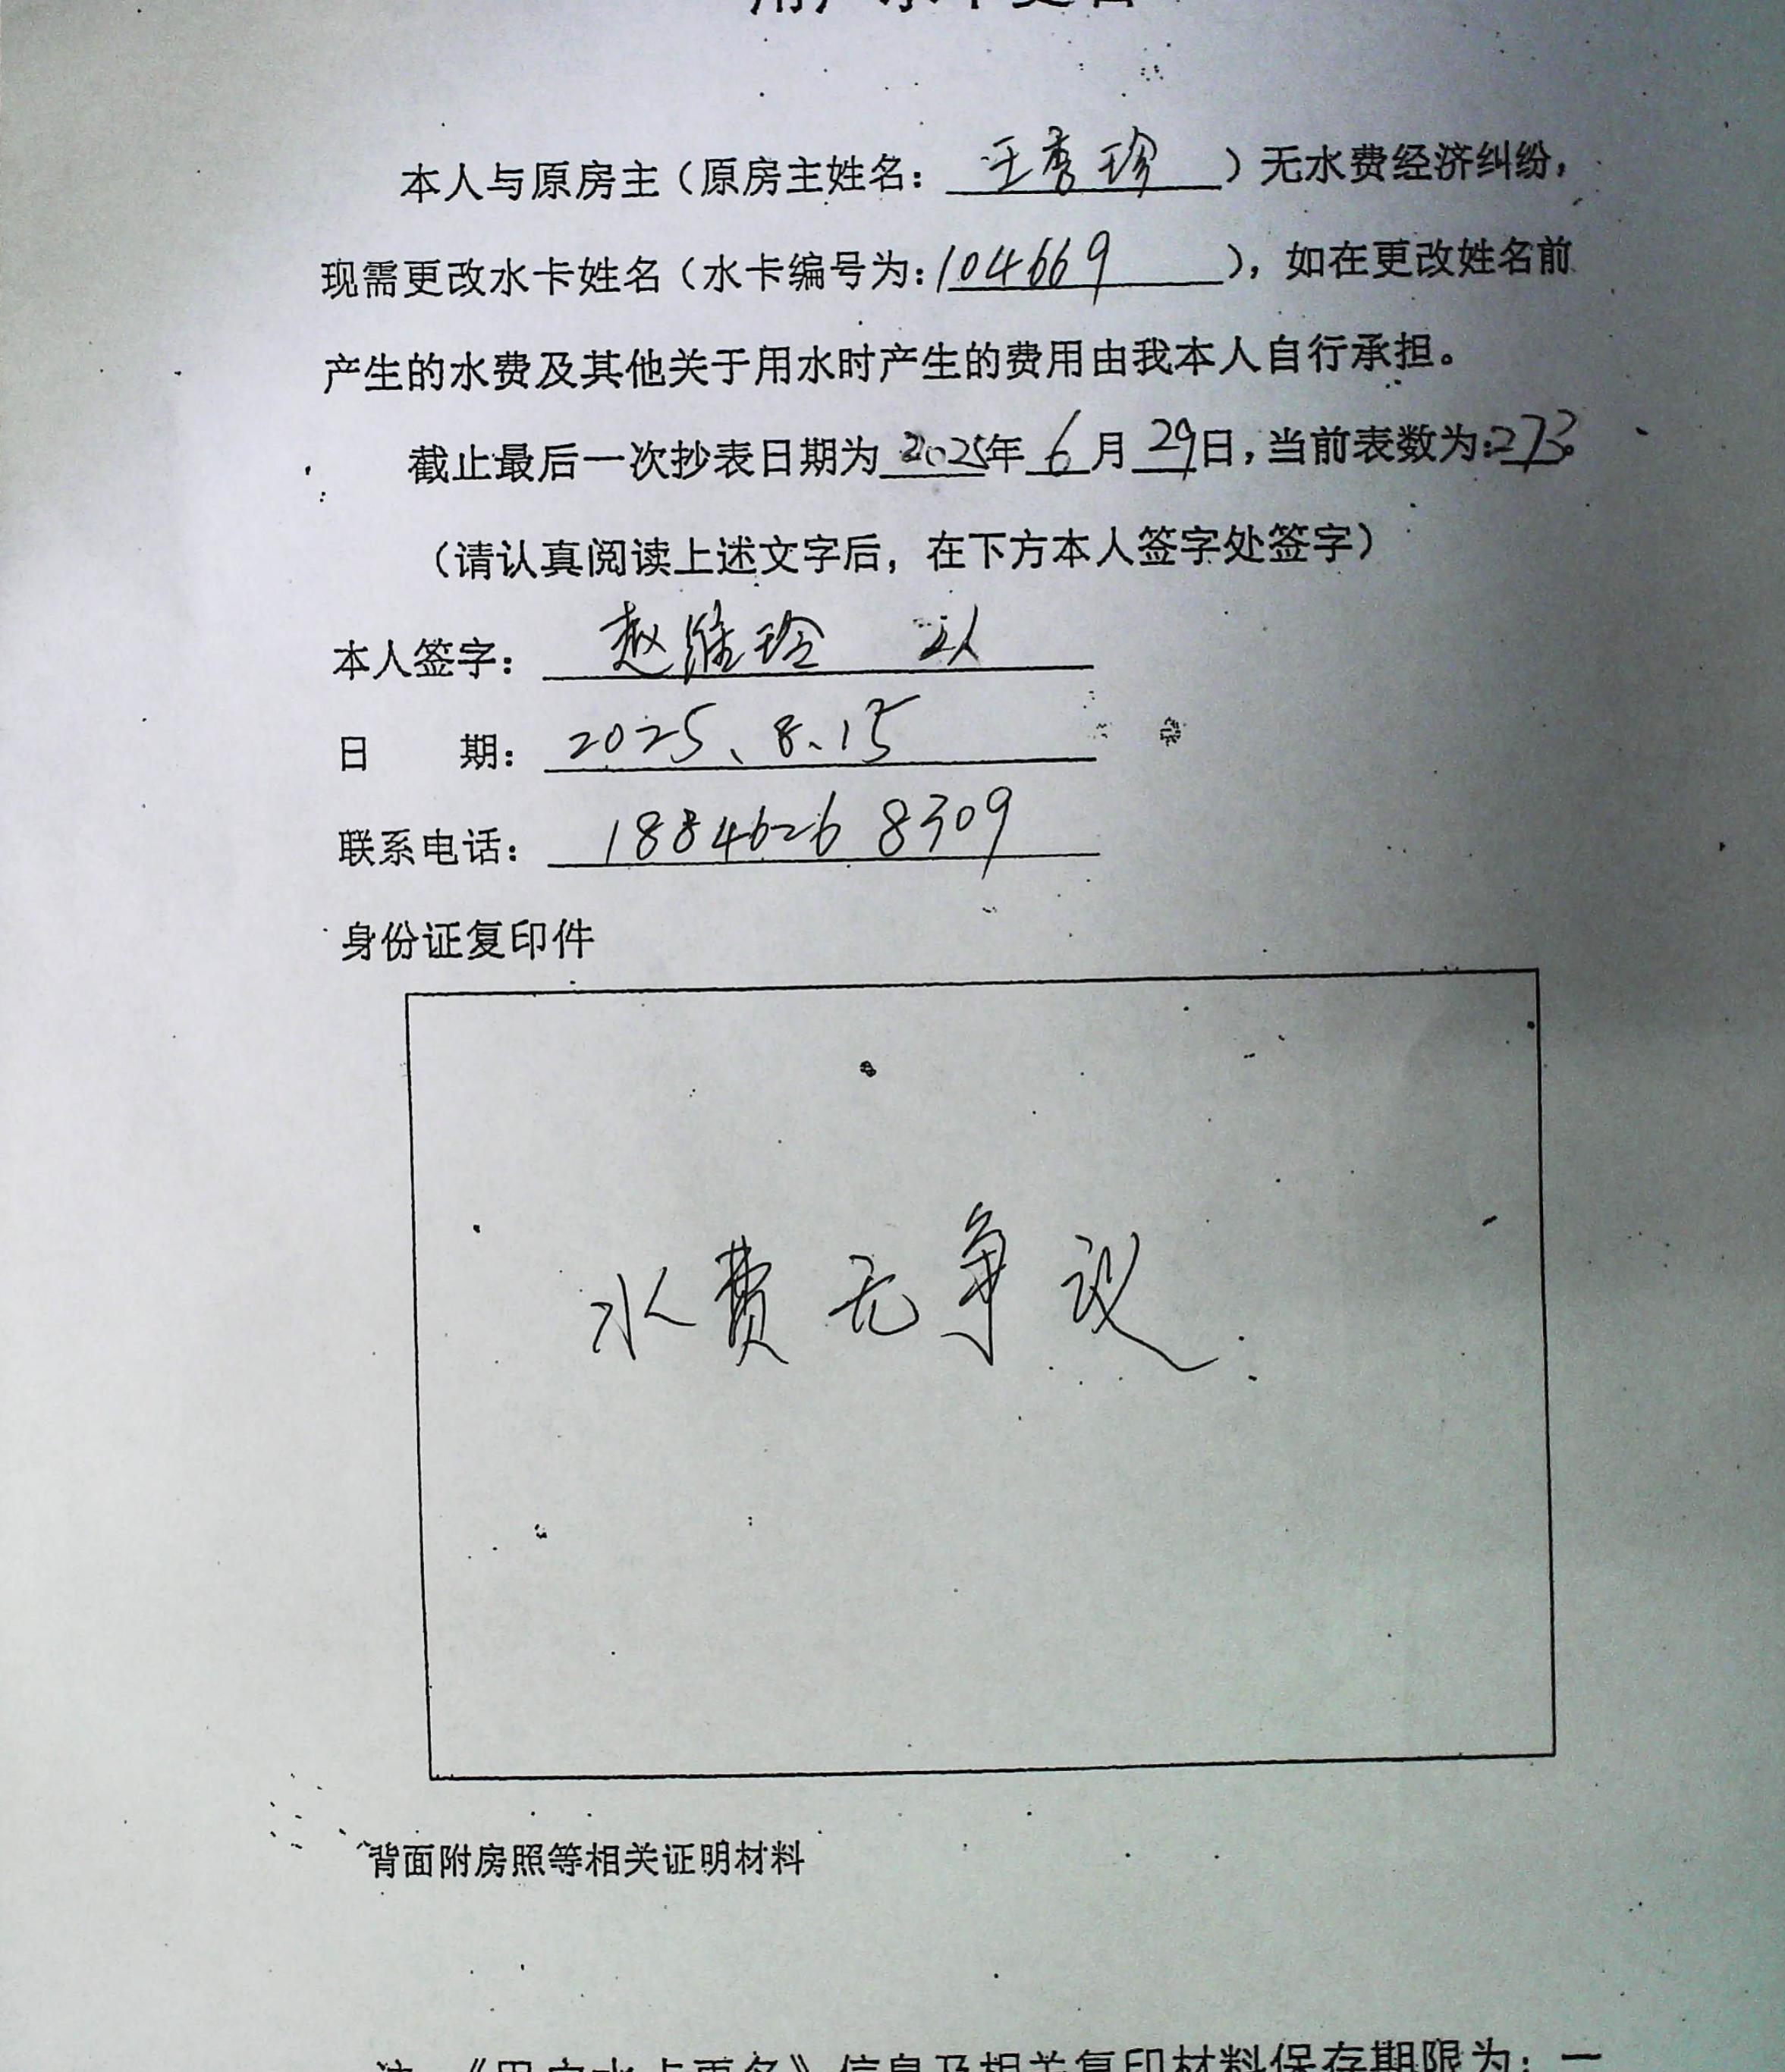 用户水卡更名
本人与原房主（原房主姓名：王秀珍）无水费经济纠纷，
现需更改水卡姓名（水卡编号为：104669），如在更改姓名前
产生的水费及其他关于用水时产生的费用由我本人自行承担。
截止最后一次抄表日期为2025年6月29日，当前表数为：273
（请认真阅读上述文字后，在下方本人签字处签字）
本人签字：赵维玲
日 期：2025、8、15
联系电话：18846268309
身份证复印件
水费无争议
背面附房照等相关证明材料
注：《用户水卡更名》信息及相关复印材料保存期限为：一